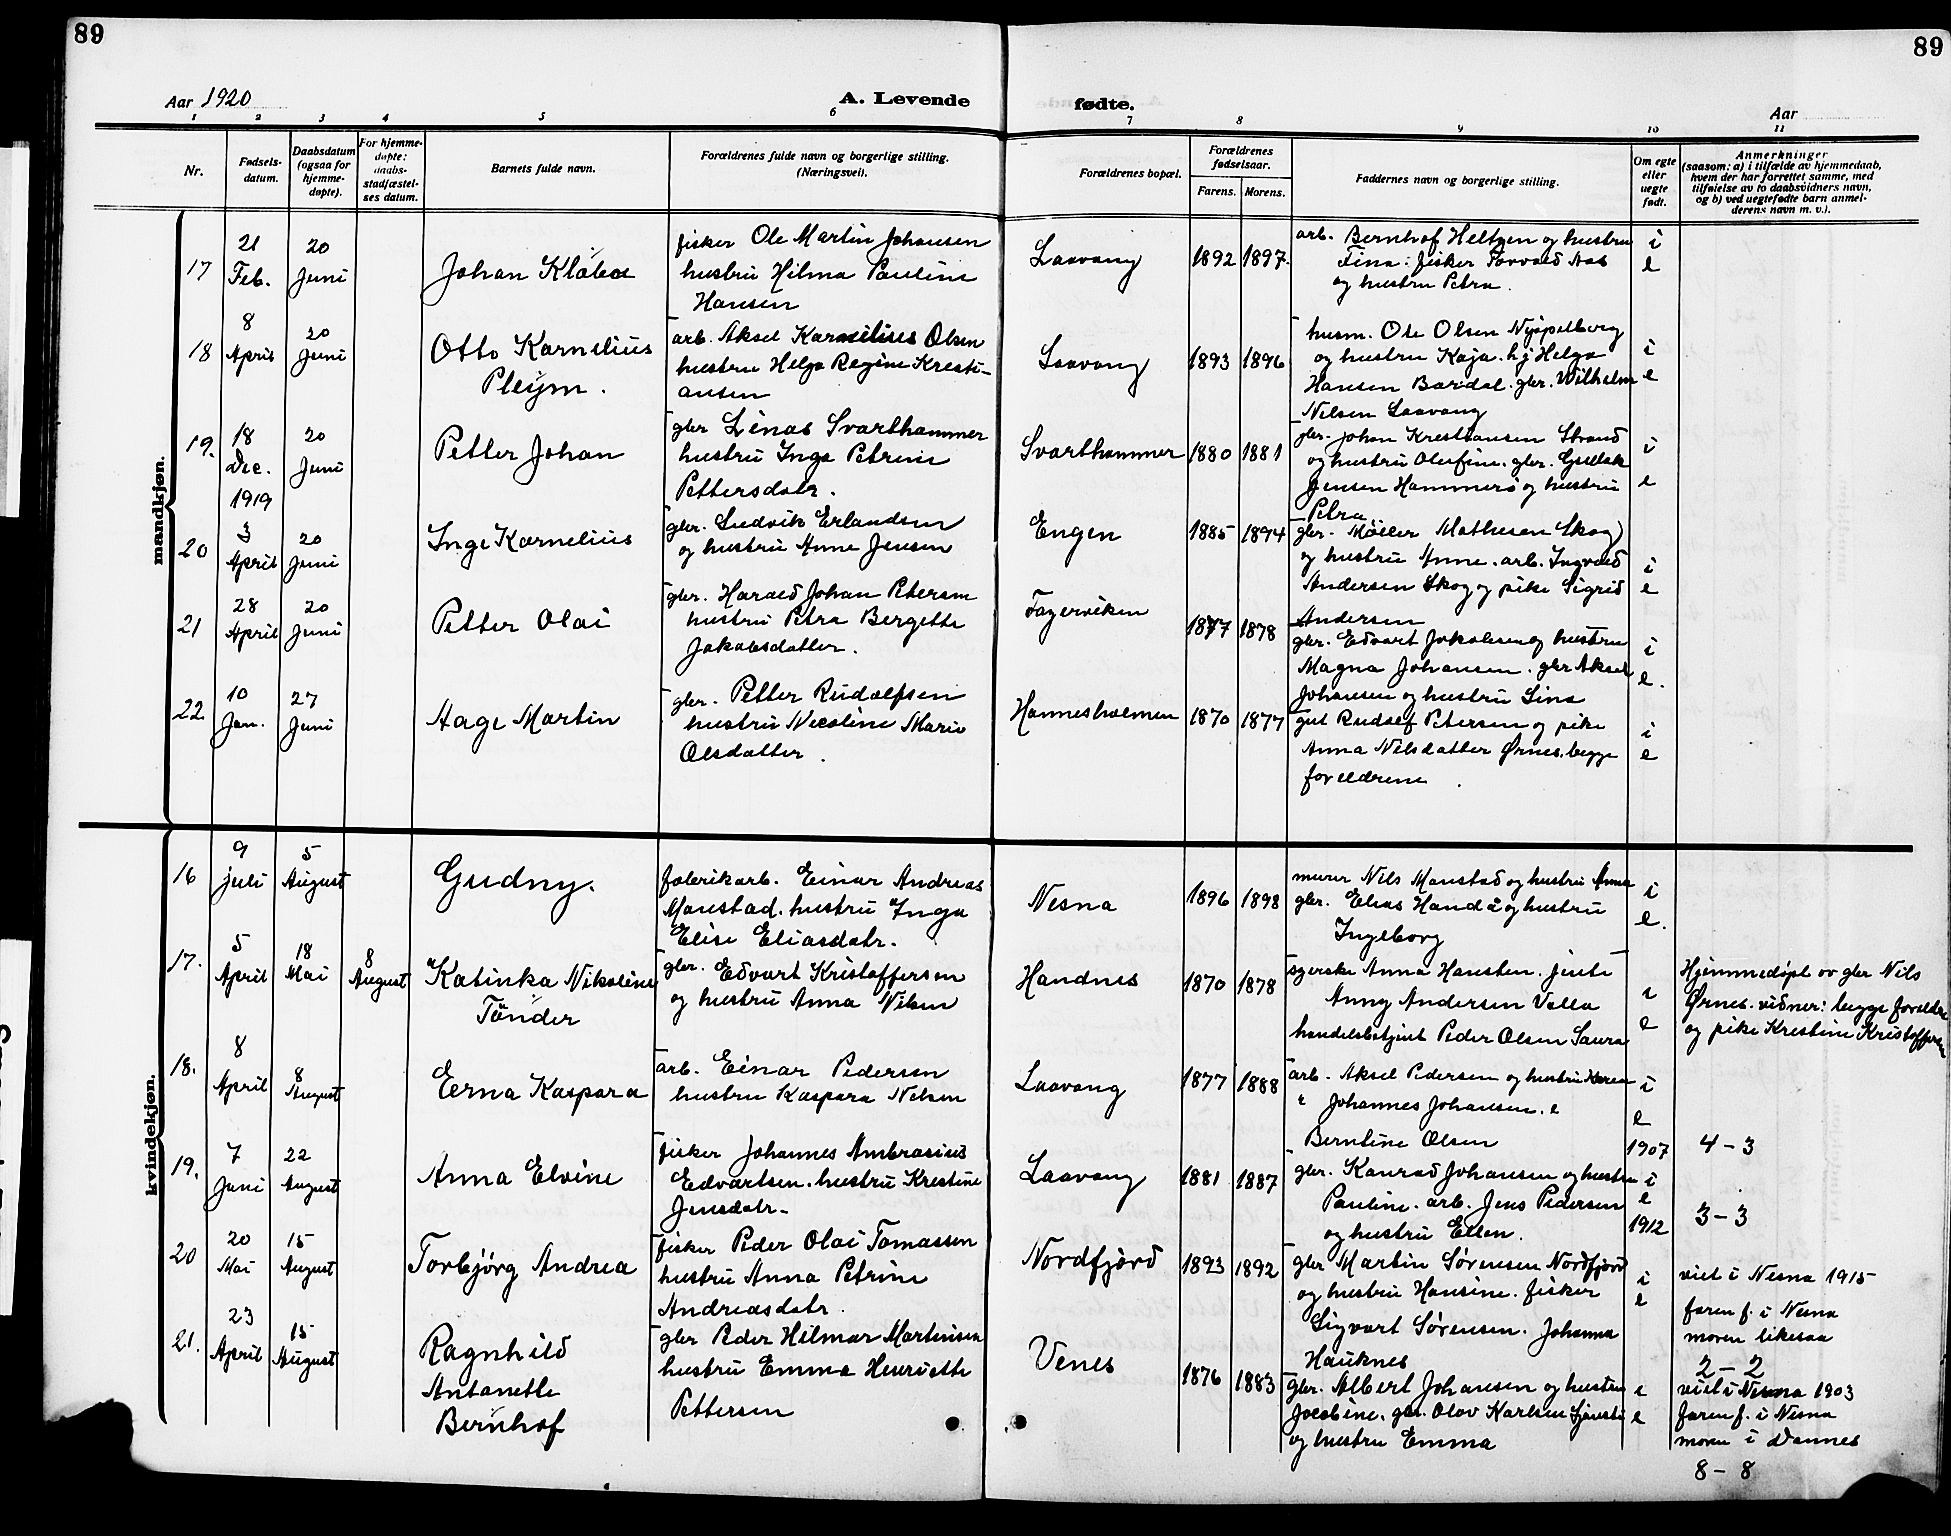 89
89
Aar 1920
A. Levende
fødte.
Aar
1 2 3 4 5 6 7 8 9 10 11
Nr.
Fødsels-
datum.
Daabsdatum
(ogsaa for
hjemme-
døpte).
For hjemme-
døpte:
daabs-
stadfæstel-
ses datum.
Barnets fulde navn.
Forældrenes fulde navn og borgerlige stilling.
(Næringsvei).
Forældrenes bopæl.
Forældrenes
fødselsaar.
Farens. Morens.
Faddernes navn og borgerlige stilling.
Om egte
eller
uegte
født.
Anmerkninger
(saasom: a) i tilfælde av hjemmedaab,
hvem der har forrettet samme, med
tilføielse av to daabsvidners navn,
og b) ved uegtefødte barn anmel-
derens navn m. v.).
mandkjøn.
17
21
Feb.
20
Juni
Johan Klåboe
fisker Ole Martin Johansen
hustru Hilma Pauline
Hansen
Laavong
1892 1897.
arb. Bernhof Heltzen og hustru
Fina: fisker Torvald Aas
og hustru Petra.
i
e
18
8
April
20
Juni
Otto Kornelius
Pleym.
arb. Aksel Kornelius Olsen
hustru Helga Regine Kresti-
ansen
Laavong
1893 1896
husm. Ole Olsen Nyppelberg
og hustru Kaja. hj Helga
Hansen Bardal. gbr. Wilhelm
Nilsen Laavong
i
e
19.
18
Dec.
1919
20
Juni
Petter Johan
gbr Linas Svarthammer
hustru Inga Petrine
Pettersdatr.
Svarthammer
1880 1881
gbr. Johan Krestiansen Strand
og hustru Olufine. gbr. Gullak
Jensen Hammerø og hustru
Petra
i
e
20
3
April
20
Juni
Inge Kornelius
gbr. Ludvik Erlandsen
og hustru Anne Jensen
Engen
1885 1894
gbr. Møller Mathesen Skog
og hustru Anne. arb. Ingvald
Andersen Skog og pike Sigrid
Andersen
i
e
21
28
April
20
Juni
Petter Olai
gbr. Harald Johan Petersen
hustru Petra Bergette
Jakobsdatter.
Fagerviken
1877 1878
gbr. Edvart Jakobsen og hustru
Magna Johansen. gbr Aksel
Johansen og hustru Lina
i
e.
22
10
Jan.
27
Juni
Aage Martin
gbr. Petter Rudolfsen
hustru Nicoline Marie
Olsdatter.
Hannesholmen
1870 1877
gut Rudolf Petersen og pike
Anna Nilsdatter Ørnes. begge
foreldrene.
i
e
kvindekjøn.
16
9
juli
5
August
Gudny.
fabrikarb. Einar Andreas
Monstad. hustru Inga
Elise Eliasdatr.
Nesna
1896 1898
murer Nils Monstad og hustru Anna
gbr. Elias Handå og hustru
Ingeborg
i
e.
17.
5
April
18
Mai
8
August
Katinka Nikoline
Tönder
gbr. Edvart Kristoffersen
og hustru Anna Nilsen
Handnes
1870 1878
syerske Anna Hansten. jente
Anny Andersen Valla
handelsbetjent Peder Olsen Saura
e
e
Hjemmedöpt av gbr Nils
Ørnes. vidner: begge foreldre
og pike Krestine Kristoffersen
18.
8
April
8
August
Erna Kaspara
arb. Einar Pedersen
hustru Kaspara Nilsen
Laavong
1877 1888
arb. Aksel Pedersen og hustru Karen
" Johannes Johansen. e
Berntine Olsen
i
e
1907
4-3
19.
7
Juni
22
August
Anna Elvine
fisker Johannes Ambrosius
Edvartsen. hustru Krestine
Jensdatr.
Laavong
1881 1887
gbr. Konrad Johansen og hustru
Pauline. arb. Jens Pedersen
og hustru Ellen.
i
e
1912
3-3
20
20
Mai
15
August
Torbjörg Andrea
fisker Peder Olai Tomassen
hustru Anna Petrine
Andreasdatr.
Nordfjord
1893 1892
gbr Martin Sørensen Nordfjord
og hustru Hansine. fisker
Sigvart Sørensen. Johanna
Hauknes
i
e
viet i Nesna 1915
faren f. i Nesna
moren likesaa
2-2
21.
23
April
15
August
Ragnhild
Antonette
Bernhof
gbr Peder Hilmar Martinsen
hustru Emma Henriette
Pettersen
Venes
1876 1883
gbr. Albert Johansen og hustru
Jocobine. gbr. Olov Karlsen
og hustru Emma
e
e
viet i Nesna 1903
faren f. i Nesna
moren i Dønnes
8-8